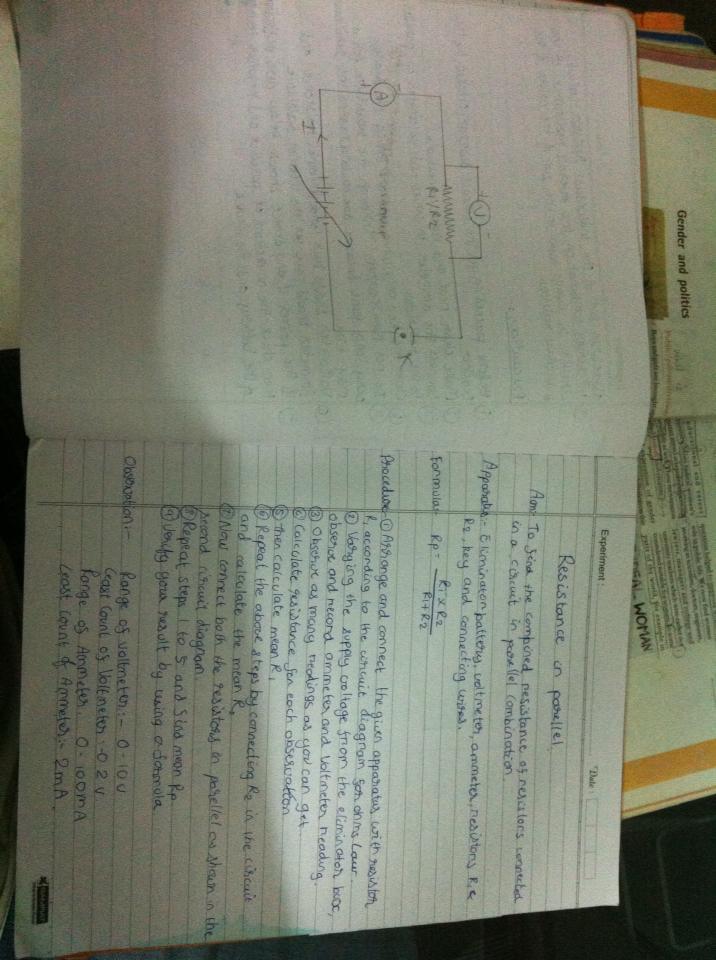 Gender and politics
WOMAN
Experiment :
Date :
Resistance in parellel.
Aim:- To find the combined resistance of resistors connected
in a circuit in parellel combination.
Apparatus:- Eliminator battery, voltmeter, ammeter, resistors R1 &
R2, key and connecting wires.
Formula:- Rp = R1 × R2
R1 + R2
Procedure:- ① Arrange and connect the given apparatus with resistor
R1 according to the circuit diagram for ohms law.
② Varying the supply voltage from the eliminator box,
observe and record ammeter and voltmeter reading.
③ Observe as many readings as you can get.
④ Calculate resistance for each observation
⑤ Then calculate mean R1
⑥ Repeat the above steps by connecting R2 in the circuit
and calculate the mean R2
⑦ Now connect both the resistors in parellel as shown in the
second circuit diagram.
⑧ Repeat steps 1 to 5 and find mean Rp
⑨ Verify your result by using a formula
Observation:- Range of voltmeter:- 0-10V
Least Count of Voltmeter:- 0.2 V
Range of Ammeter. 0-100mA
Least Count of Ammeter:- 2mA.
V
+
-
R1/R2
A
+
-
I
K